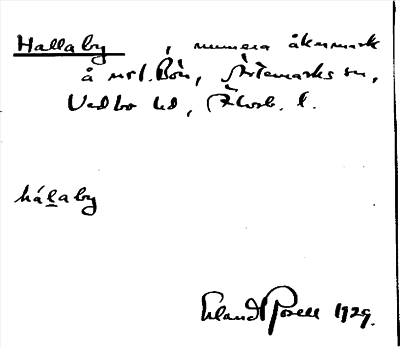 Hallaby, numera åkermark
å utj. Bön, Ärtemarks sn,
Vedbo hd, Älvsb. l.
hálaby
Erland Rosell 1929.